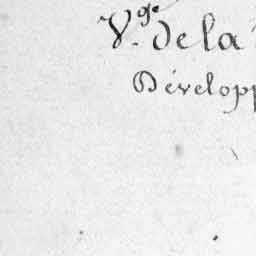 V.ge de la
Développ